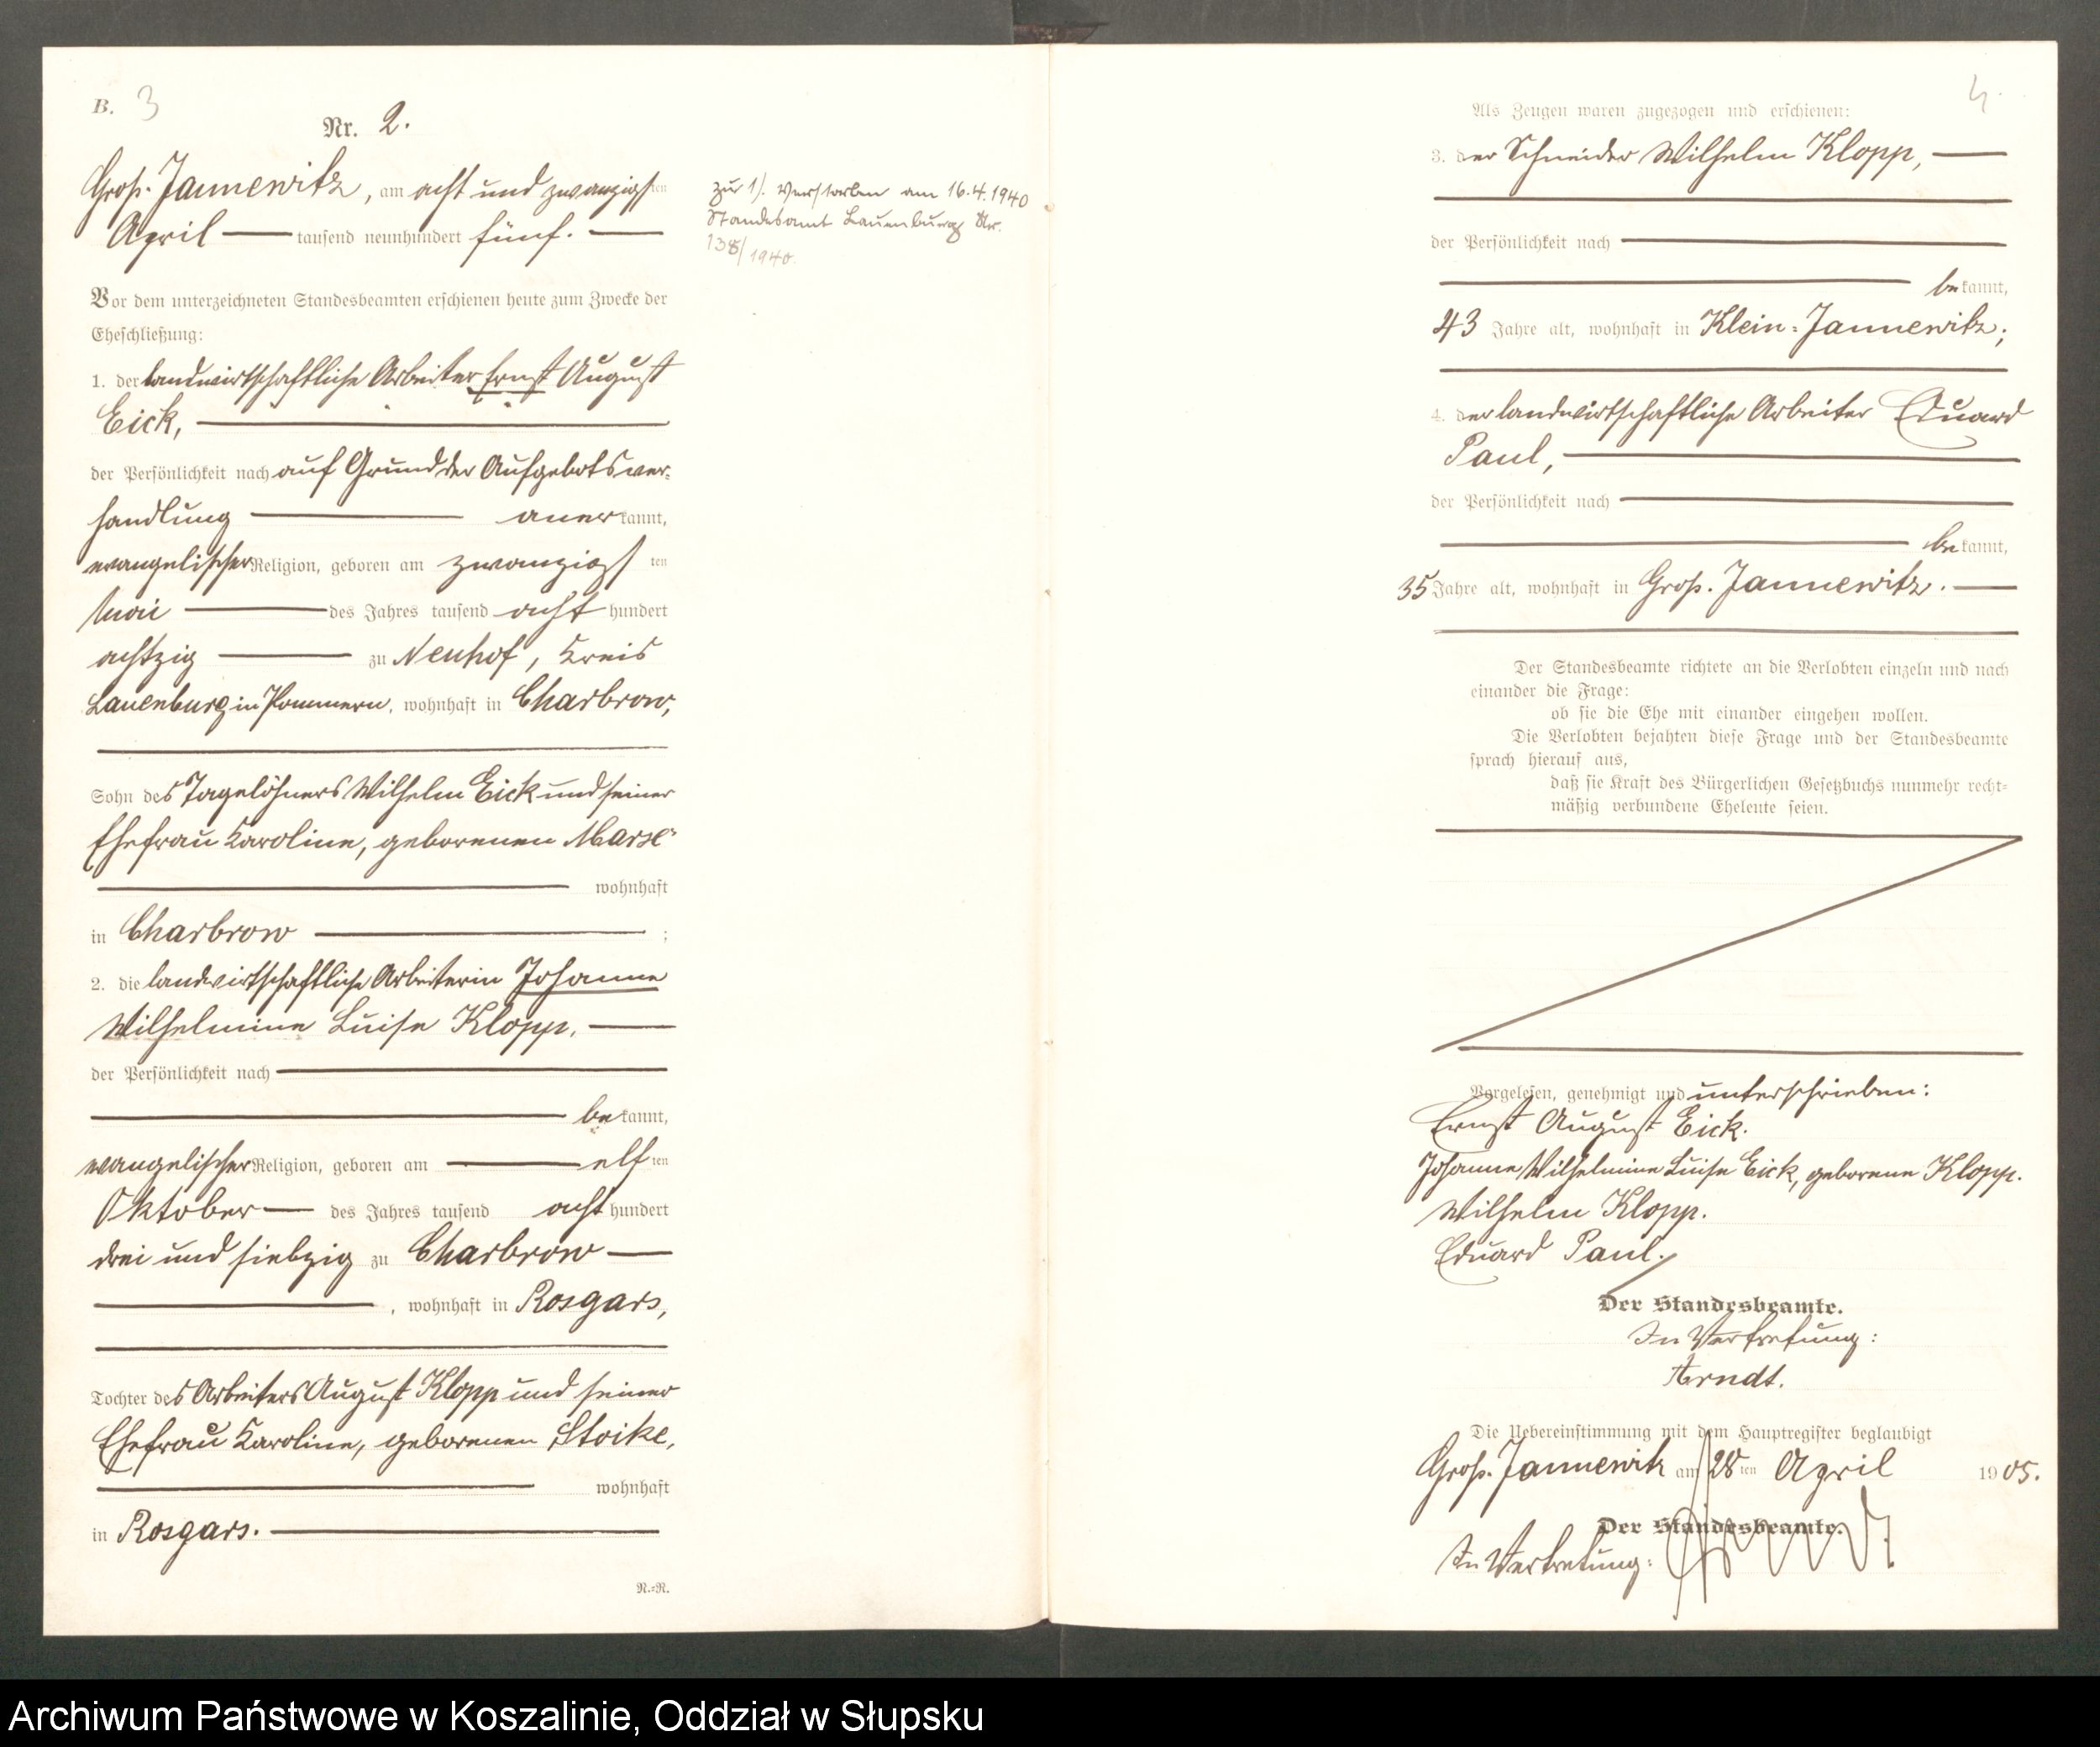 B. 3
Nr. 2.
Groß-Jannewitz, am acht und zwanzigsten
April tausend neunhundert fünf.
Vor dem unterzeichneten Standesbeamten erschienen heute zum Zwecke der
Eheschließung:
1. der landwirtschaftliche Arbeiter Ernst August
Eick,
der Persönlichkeit nach auf Grund der Aufgebotsver-
handlung anerkannt,
evangelischer Religion, geboren am zwanzigsten
Mai des Jahres tausend acht hundert
achtzig zu Neuhof, Kreis
Lauenburg in Pommern, wohnhaft in Charbrow,
Sohn des Tagelöhners Wilhelm Eick und seiner
Ehefrau Karoline, geborenen
wohnhaft
in Charbrow ;
2. die landwirtschaftliche Arbeiterin Johanne
Wilhelmine Luise Klopp,
der Persönlichkeit nach
bekannt,
evangelischer Religion, geboren am elften
Oktober des Jahres tausend acht hundert
drei und siebzig zu Charbrow
, wohnhaft in Rosgars,
Tochter des Arbeiters August Klopp und seiner
Ehefrau Karoline, geborenen Stoike,
wohnhaft
in Rosgars.
N.=N.
zu 1). Verstorben am 16.4.1940
Standesamt Lauenburg Nr.
138/1940.
4.
Als Zeugen waren zugezogen und erschienen:
3. der Schneider Wilhelm Klopp,
der Persönlichkeit nach
bekannt,
43 Jahre alt, wohnhaft in Klein-Jannewitz;
4. der landwirtschaftliche Arbeiter Eduard
Paul,
der Persönlichkeit nach
bekannt,
35 Jahre alt, wohnhaft in Groß-Jannewitz.
Der Standesbeamte richtete an die Verlobten einzeln und nach
einander die Frage:
ob sie die Ehe mit einander eingehen wollen.
Die Verlobten bejahten diese Frage und der Standesbeamte
sprach hierauf aus,
daß sie Kraft des Bürgerlichen Gesetzbuchs nunmehr recht-
mäßig verbundene Eheleute seien.
Vorgelesen, genehmigt und unterschrieben:
Ernst August Eick.
Johanne Wilhelmine Luise Eick, geborene Klopp.
Wilhelm Klopp.
Eduard Paul.
Der Standesbeamte.
In Vertretung:
Arndt.
Die Uebereinstimmung mit dem Hauptregister beglaubigt
Groß-Jannewitz am 28ten April 1905.
Der Standesbeamte.
In Vertretung: Arndt.
Archiwum Państwowe w Koszalinie, Oddział w Słupsku